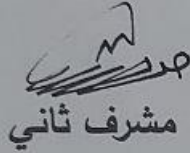 مشرف ثاني